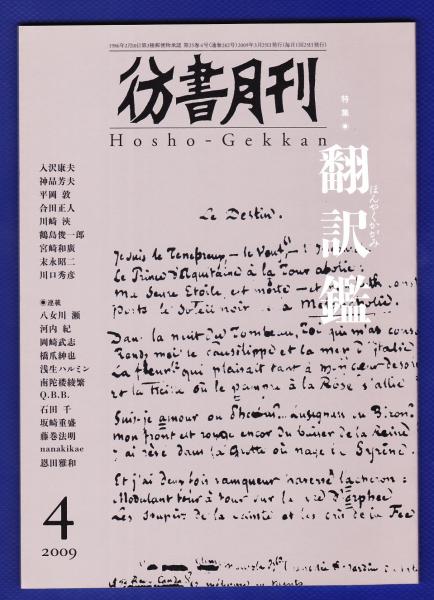 1986年2月8日第3種郵便物承認 第25巻4号(通巻282号)2009年3月25日発行(毎月1回25日発行)
彷書月刊
Hosho-Gekkan
特集◉
翻訳鑑
ほんやくかがみ
入沢康夫
神品芳夫
平岡 敦
合田正人
川崎 浹
鶴島俊一郎
宮崎和廣
末永昭二
川口秀彦
◉連載
八女川 瀬
河内 紀
岡崎武志
橋爪紳也
浅生ハルミン
南陀楼綾繁
Q.B.B.
石田 千
坂崎重盛
藤巻法明
nanakikae
恩田雅和
4
2009
Le Destin.
Je suis le Tenebreux, – le Veuf, –
Le Prince d'Aquitaine à la Tour abolie:
Ma Seule Etoile est morte – et
porte le Soleil noir
Dans la nuit du Tombeau, Toi qui m'as
Rends moi le Pausilippe et la mer d'Italie
La fleur qui plaisait tant à mon cœur
Et la treille où le pampre à la Rose s'allie
Suis-je amour ou Phœbus
mon front est rouge encor du baiser de la Reine
j'ai rêvé dans la Grotte où nage la Syrène.
Et j'ai deux fois vainqueur traversé l'acheron:
Modulant tour à tour sur la
Les soupirs de la sainte et les cris de la Fée